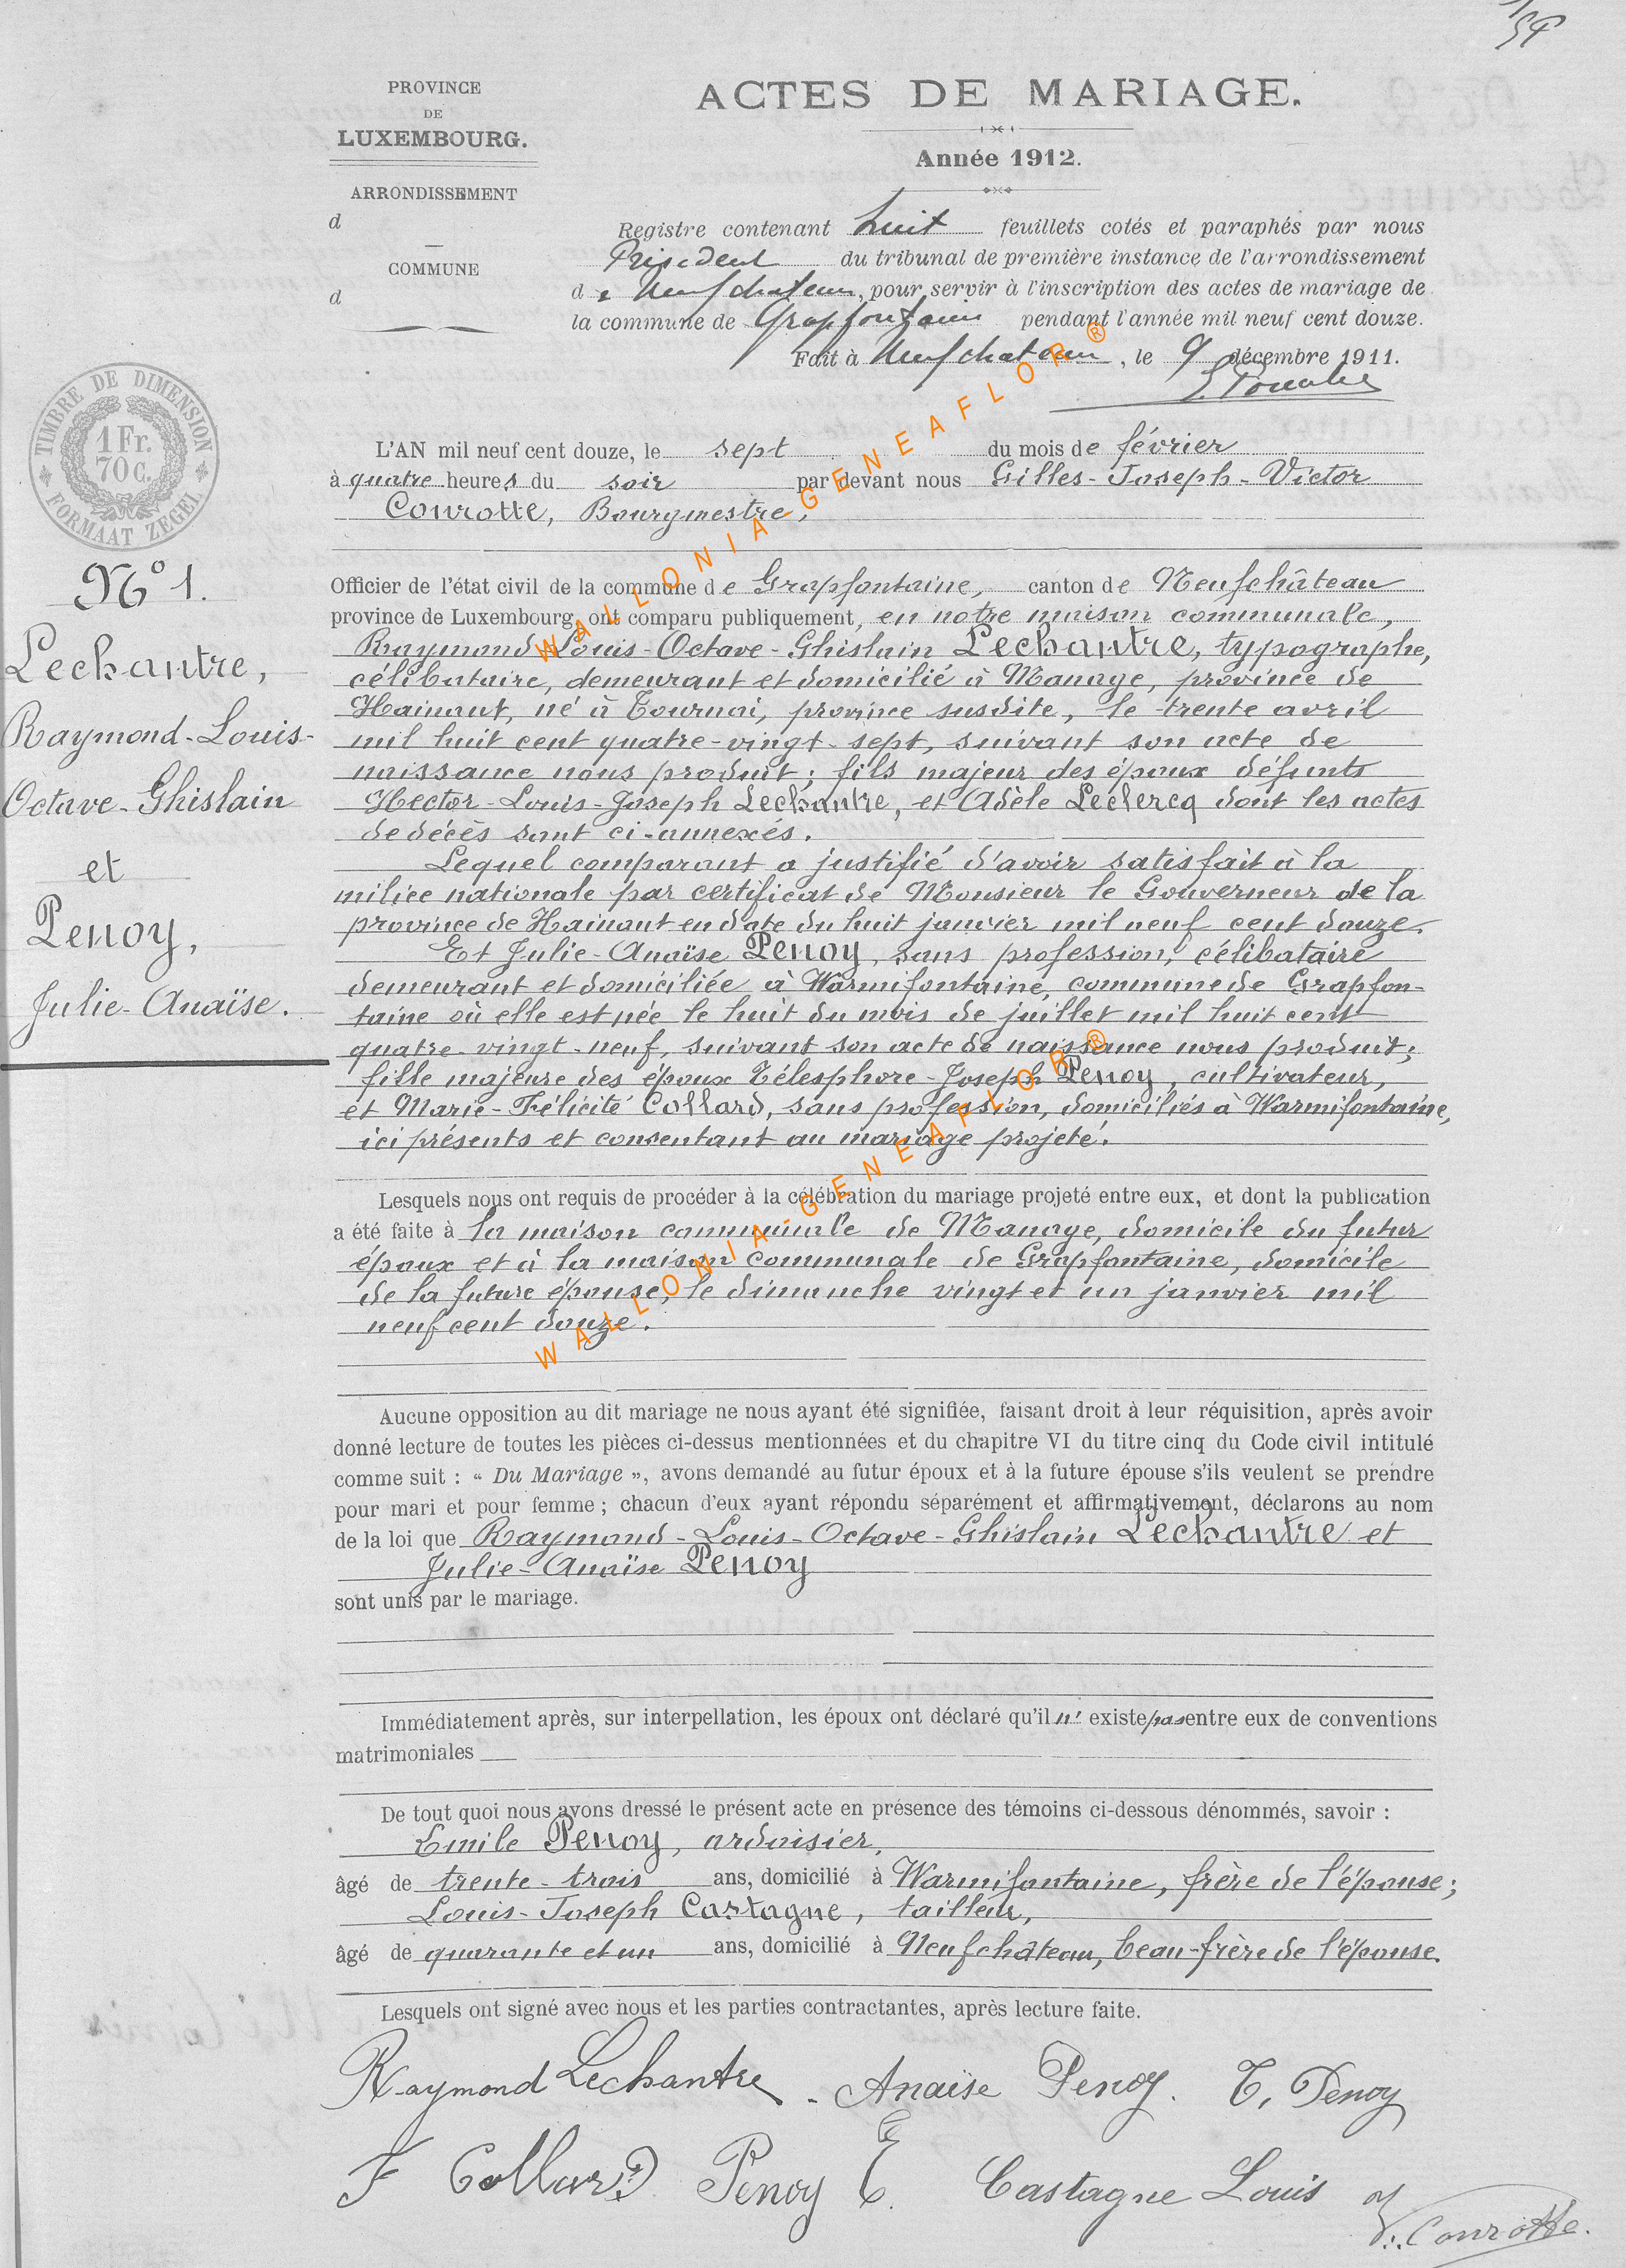 PROVINCE
DE
LUXEMBOURG.
ARRONDISSEMENT
d
COMMUNE
d
ACTES DE MARIAGE.
Année 1912.
Registre contenant huit feuillets cotés et paraphés par nous
Président du tribunal de première instance de l'arrondissement
de Neufchateau, pour servir à l'inscription des actes de mariage de
la commune de Grapfontaine pendant l'année mil neuf cent douze.
Fait à Neufchateau, le 9 décembre 1911.
TIMBRE DE DIMENSION
1 Fr.
70 c.
FORMAAT ZEGEL
L'AN mil neuf cent douze, le sept du mois de février
à quatre heures du soir par devant nous Gilles-Joseph-Victor
Conrotte, Bourgmestre,
Officier de l'état civil de la commune de Grapfontaine, canton de Neufchâteau
province de Luxembourg, ont comparu publiquement, en notre maison communale,
Raymond-Louis-Octave-Ghislain Lechantre, typographe,
célibataire, demeurant et domicilié à Manage, province de
Hainaut, né à Tournai, province susdite, le trente avril
mil huit cent quatre-vingt-sept, suivant son acte de
naissance nous produit; fils majeur des époux défunts
Hector-Louis-Joseph Lechantre, et Adèle Leclercq dont les actes
de décès sont ci-annexés.
Lequel comparant a justifié d'avoir satisfait à la
milice nationale par certificat de Monsieur le Gouverneur de la
province de Hainaut en date du huit janvier mil neuf cent douze.
Et Julie-Anaïse Penoy, sans profession, célibataire
demeurant et domiciliée à Warmifontaine, commune de Grapfon-
taine où elle est née le huit du mois de juillet mil huit cent
quatre-vingt-neuf, suivant son acte de naissance nous produit;
fille majeure des époux Télesphore-Joseph Penoy, cultivateur,
et Marie-Félicité Collard, sans profession, domiciliés à Warmifontaine,
ici présents et consentant au mariage projeté.
N° 1.
Lechantre,
Raymond-Louis-
Octave-Ghislain
et
Penoy,
Julie-Anaïse.
Lesquels nous ont requis de procéder à la célébration du mariage projeté entre eux, et dont la publication
a été faite à la maison communale de Manage, domicile du futur
époux et à la maison communale de Grapfontaine, domicile
de la future épouse, le dimanche vingt et un janvier mil
neuf cent douze.
Aucune opposition au dit mariage ne nous ayant été signifiée, faisant droit à leur réquisition, après avoir
donné lecture de toutes les pièces ci-dessus mentionnées et du chapitre VI du titre cinq du Code civil intitulé
comme suit : « Du Mariage », avons demandé au futur époux et à la future épouse s'ils veulent se prendre
pour mari et pour femme ; chacun d'eux ayant répondu séparément et affirmativement, déclarons au nom
de la loi que Raymond-Louis-Octave-Ghislain Lechantre et
Julie-Anaïse Penoy
sont unis par le mariage.
Immédiatement après, sur interpellation, les époux ont déclaré qu'il n' existe pas entre eux de conventions
matrimoniales
De tout quoi nous avons dressé le présent acte en présence des témoins ci-dessous dénommés, savoir :
Emile Penoy, ardoisier,
âgé de trente-trois ans, domicilié à Warmifontaine, frère de l'épouse;
Louis-Joseph Castagne, tailleur,
âgé de quarante et un ans, domicilié à Neufchâteau, beau-frère de l'épouse.
Lesquels ont signé avec nous et les parties contractantes, après lecture faite.
Raymond Lechantre Anaïse Penoy. T. Penoy
F Collard Penoy E. Castagne Louis V. Conrotte.
WALLONIA-GENEAFLOR ®
WALLONIA-GENEAFLOR ®